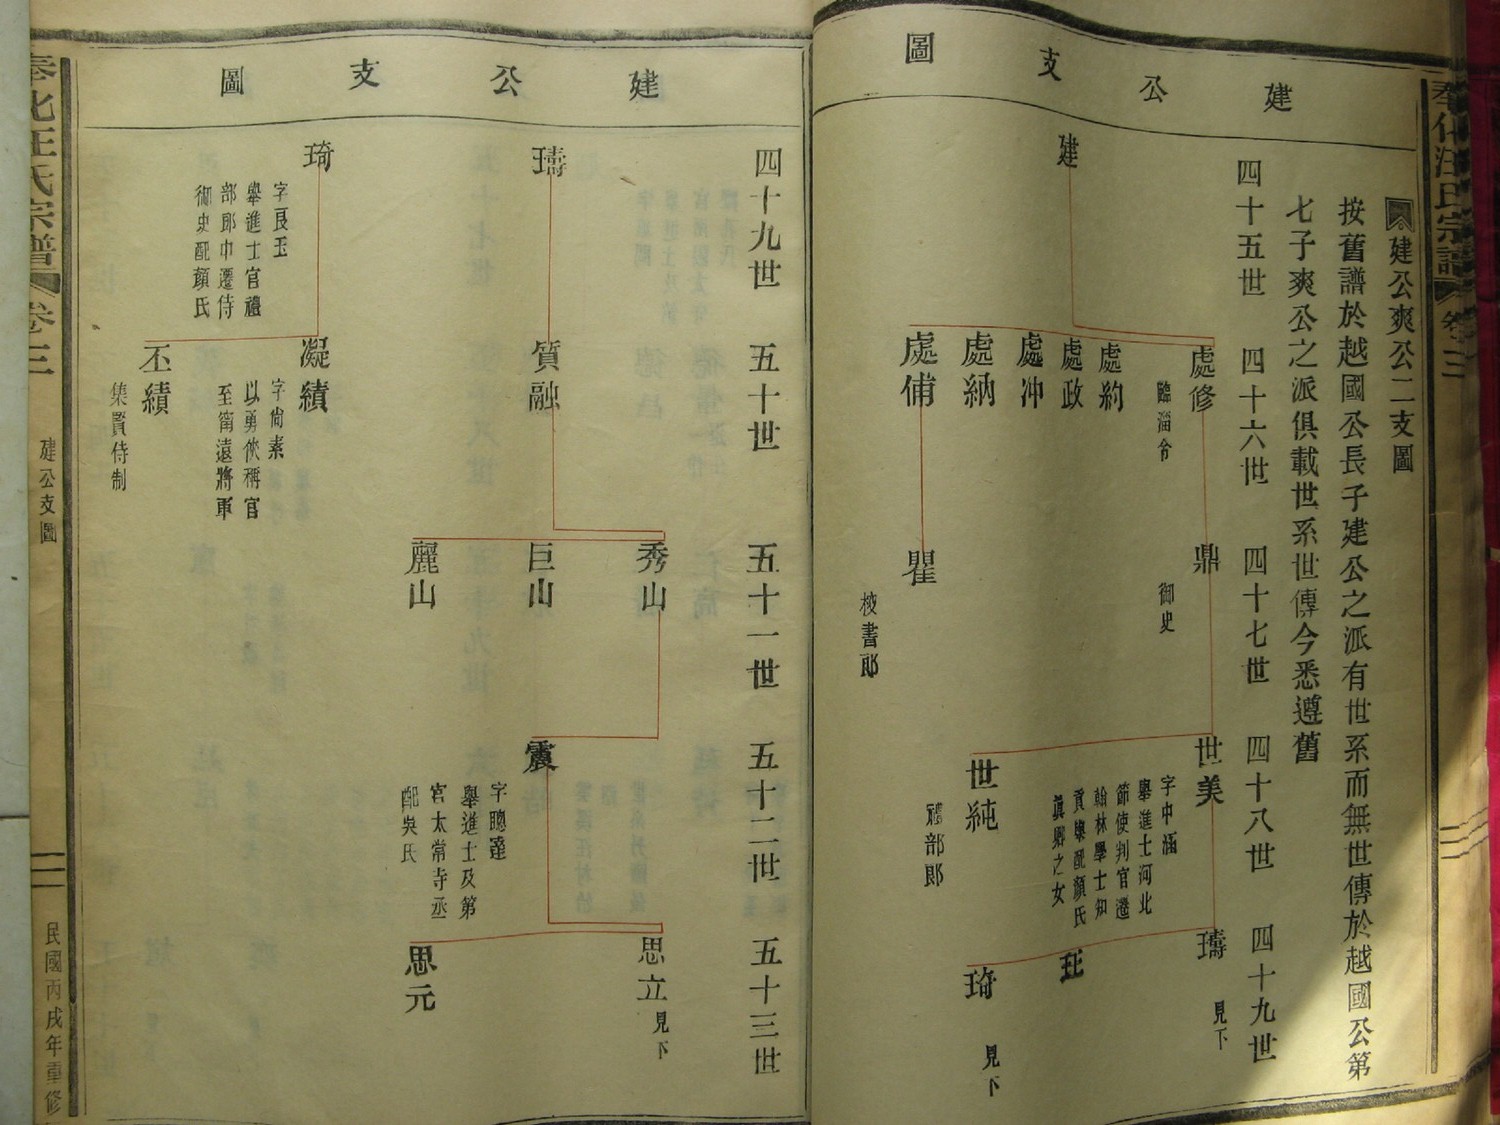 奉化汪氏宗譜
卷三
建公支圖
建公爽公二支圖
按舊譜於越國公長子建公之派有世系而無世傳於越國公第
七子爽公之派俱載世系世傳今悉遵舊
四十五世 四十六世 四十七世 四十八世 四十九世
建
處修
臨淄令
處約
處政
處冲
處納
處俌
鼎
御史
瞿
校書郎
世美
字中涵
舉進士河北
節使判官遷
翰林學士知
貢舉配顏氏
真卿之女
世純
禮部郎
璹
見下
玨
琦
見下
建公支圖
四十九世 五十世 五十一世 五十二世 五十三世
璹
質融
秀山
巨山
麗山
震
字聰達
舉進士及第
官太常寺丞
配吳氏
思立
見下
思元
琦
字良玉
舉進士官禮
部郎中遷侍
御史配顏氏
凝績
字尚素
以勇俠稱官
至甯遠將軍
丕績
集賢侍制
奉化汪氏宗譜
卷三
建公支圖
二
民國丙戌年重修